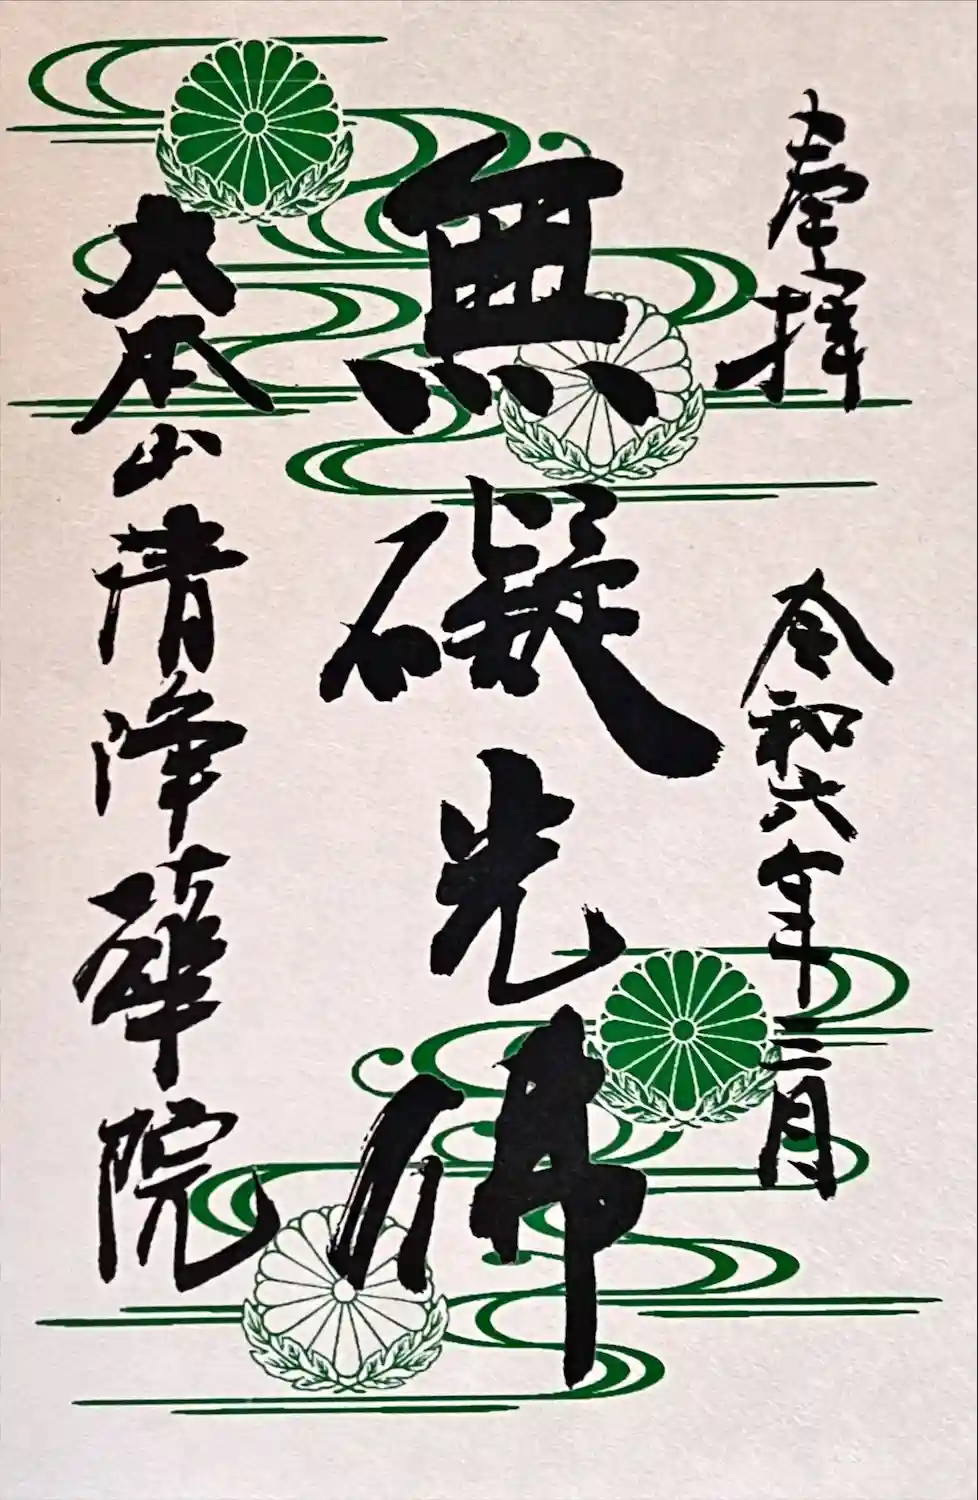 奉拝
令和六年三月
無礙光佛
大本山清浄華院